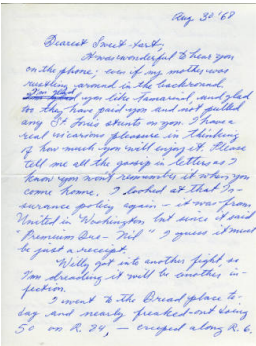 Aug 30 '68
Dearest Sweet-tart,
It was wonderful to hear you
on the phone; even if my mother was
rustling around in the background.
I'm glad you like Tamarind, and glad
for the have paid you and not pulled
any St Louis stunts on you. I have a
real vicarious pleasure in thinking
of how much you will enjoy it. Please
tell me all the gossip in letters as I
know you wont remember it when you
come home. I looked at that In-
surance policy again — it was from
United in Washington but since it said
"Premium Due - Nil" I guess it must
be just a receipt.
Welly got into another fight so
I'm dreading it will be another in-
fection.
I went to the Bread place to-
day and nearly freaked-out doing
50 on R 24, — creeped along R. 6.